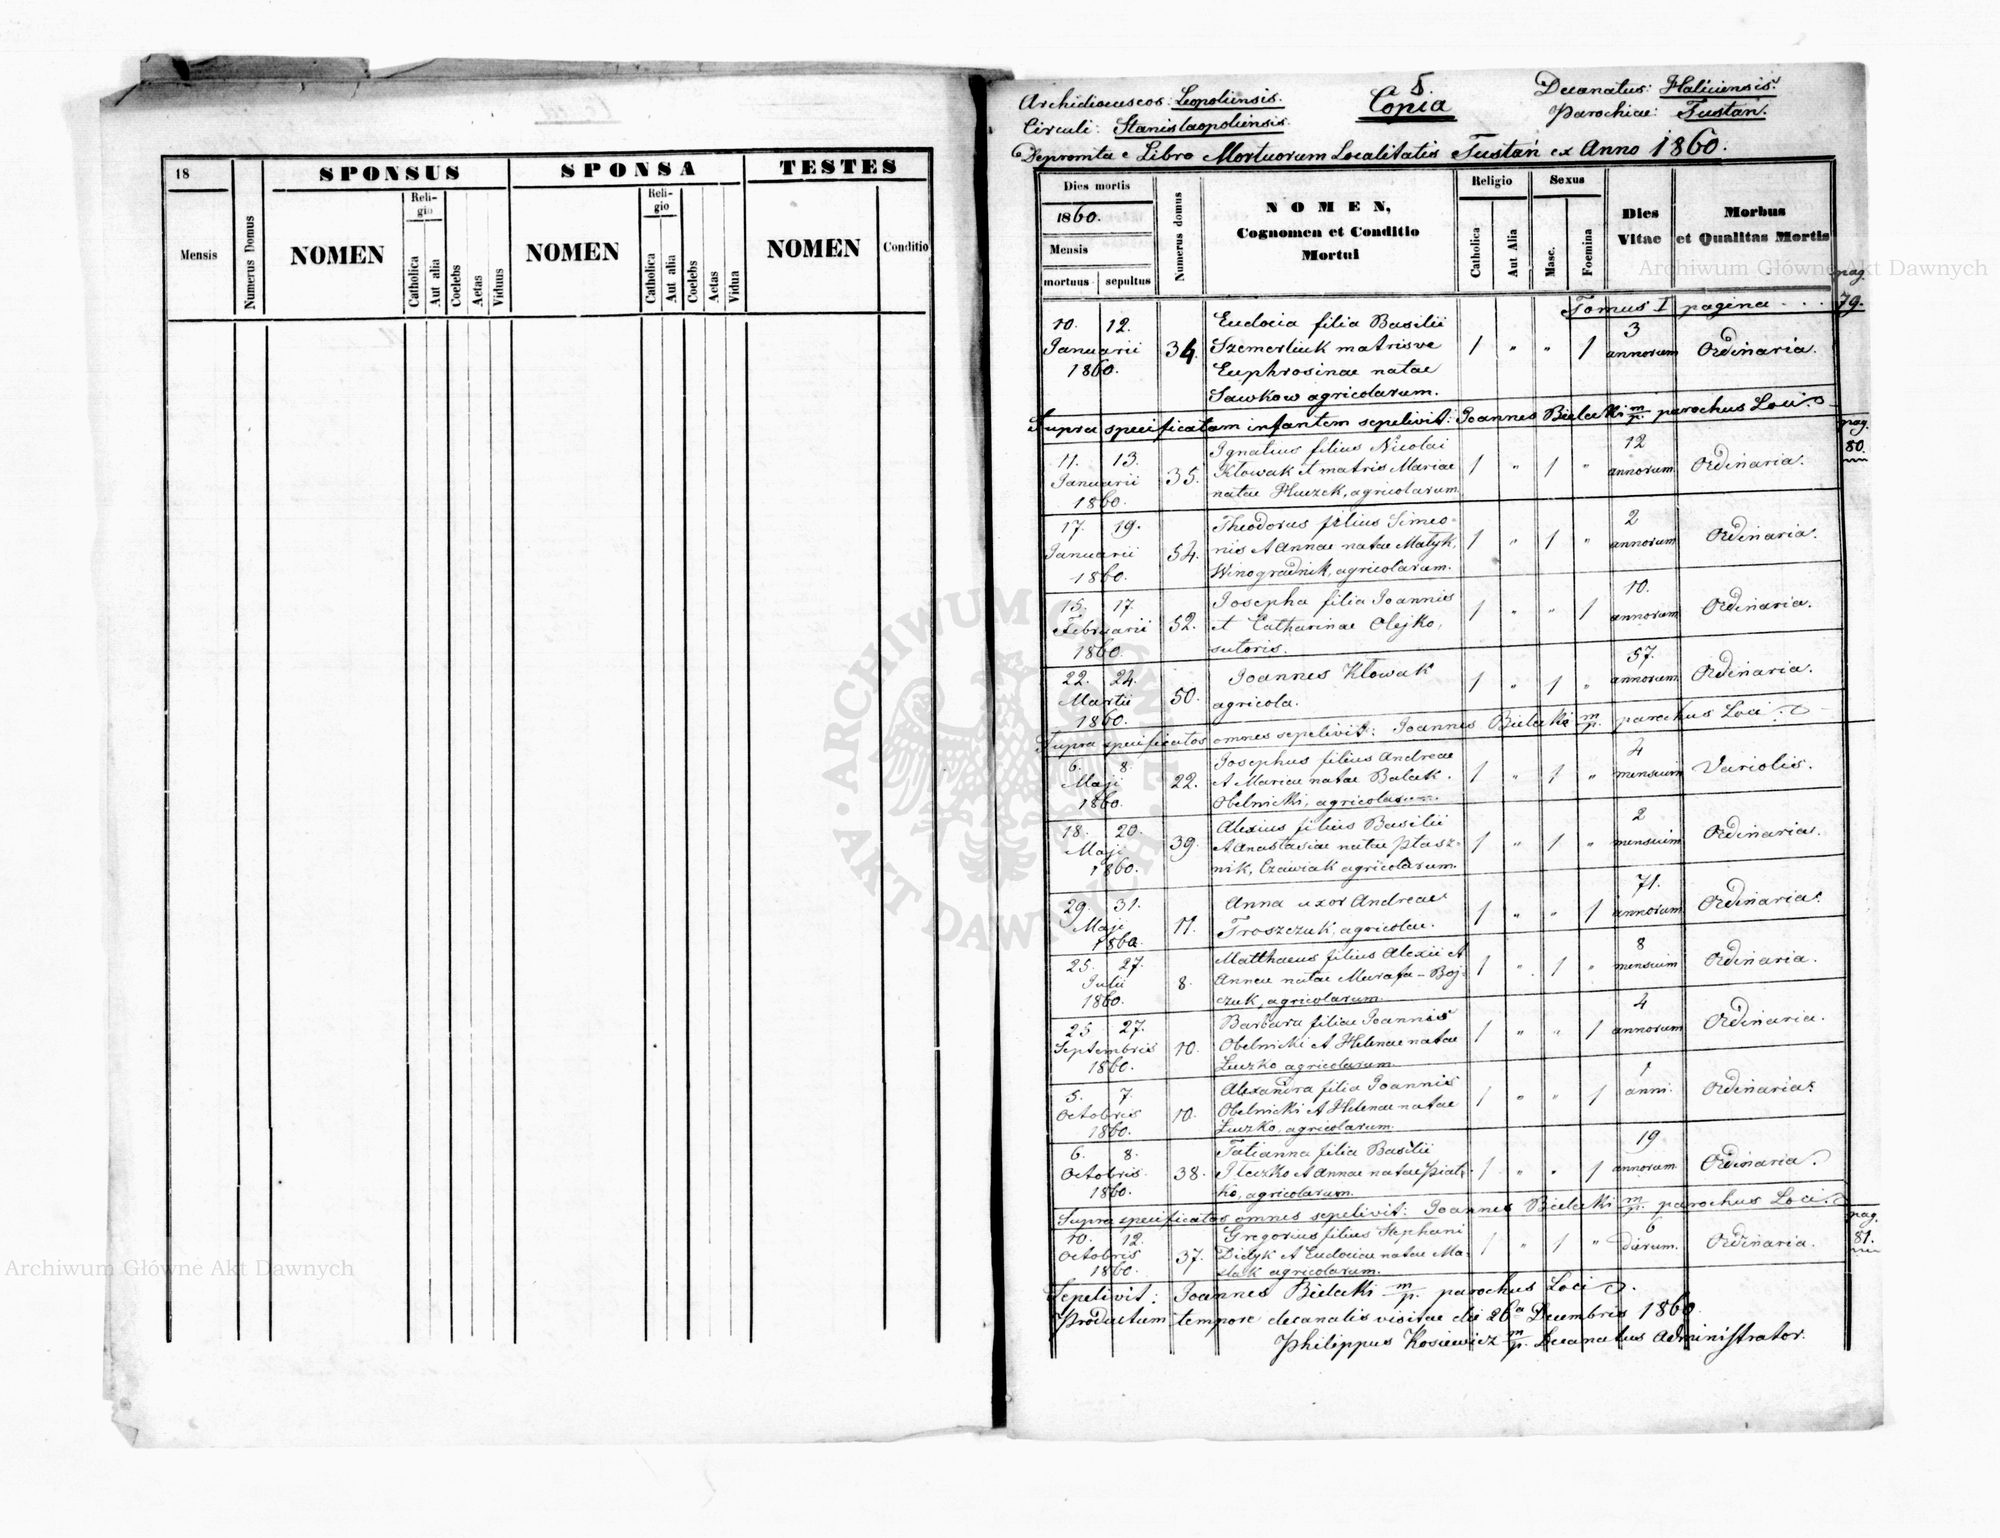 18
SPONSUS
SPONSA
TESTES
Mensis
Numerus Domus
NOMEN
Religio
Catholica
Aut alia
Coelebs
Aetas
Viduus
NOMEN
Religio
Catholica
Aut alia
Coelebs
Aetas
Vidua
NOMEN
Conditio
5.
Archidioceseos: Leopoliensis. Copia Decanatus: Haliciensis.
Circuli: Stanislaopoliensis. Parochiae: Tustań.
Depromta e Libro Mortuorum Localitatis Tustań ex Anno 1860.
Dies mortis
1860.
Mensis
mortuus sepultus
Numerus domus
NOMEN,
Cognomen et Conditio
Mortui
Religio
Catholica
Aut Alia
Sexus
Masc.
Foemina
Dies
Vitae
Morbus
et Qualitas Mortis
pag.
Tomus I pagina . . . 79.
10. 12. Eudocia filia Basilii 3
Januarii 34. Szemerliuk matrisve 1 " " 1 annorum Ordinaria.
1860. Euphrosinae natae
Sawkow agricolarum.
Supra specificatam infantem sepelivit: Joannes Bielecki m/p. parochus Loci.
pag.
80.
11. 13. Ignatius filius Nicolai 12
Januarii 35. Kłowak et matris Mariae 1 " 1 " annorum Ordinaria.
1860. natae Huczek, agricolarum
17. 19. Theodorus filius Simeo- 2
Januarii 54. nis et Annae natae Matyk, 1 " 1 " annorum Ordinaria.
1860. Winogradnik, agricolarum.
15. 17. Josepha filia Joannis 10.
Februarii 52. et Catharinae Olejko, 1 " " 1 annorum Ordinaria.
1860. sutoris.
22. 24. Joannes Kłowak 57.
Martii 50. agricola. 1 " 1 " annorum Ordinaria.
1860.
Supra specificatos omnes sepelivit: Joannes Bielecki m/p. parochus Loci.
6. 8. Josephus filius Andreae 4
Maji 22. et Mariae natae Balak. 1 " 1 " mensium Variolis.
1860. Obelnicki, agricolarum.
18. 20. Alexius filius Basilii 2
Maji 39. et Anastasiae natae Ptasz- 1 " 1 " mensium Ordinaria.
1860. nik, Czawiak agricolarum.
29. 31. Anna uxor Andreae 71.
Maji 11. Troszczuk, agricolae. 1 " " 1 annorum Ordinaria.
1860
25. 27. Matthaeus filius Alexii et 8
Julii 8. Annae natae Murafa - Boj- 1 " 1 " mensium Ordinaria.
1860. czuk, agricolarum.
25 27. Barbara filiae Joannis 4
Septembris 10. Obelnicki et Helenae natae 1 " " 1 annorum Ordinaria.
1860. Łuczko agricolarum.
5. 7. Alexandra filia Joannis 1
Octobris 10. Obelnicki et Helenae natae 1 " " 1 anni. Ordinaria.
1860. Łuczko, agricolarum.
6. 8. Tatianna filia Basilii 19
Octobris. 38. Ileczko et Annae natae Piat- 1 " " 1 annorum Ordinaria.
1860. ko, agricolarum.
Supra specificatos omnes sepelivit: Joannes Bielecki m/p. parochus Loci.
pag.
81.
10. 12. Gregorius filius Stephani 6
Octobris 37. Didyk et Eudociae natae Ma- 1 " 1 " dierum. Ordinaria.
1860. slak agricolarum.
Sepelivit: Joannes Bielecki m/p. parochus Loci.
Productum tempore decanalis visitae die 26a Decembris 1860.
Philippus Kosiewicz m/p. Decanatus Administrator.
ARCHIWUM GŁÓWNE · AKT DAWNYCH ·
Archiwum Główne Akt Dawnych
Archiwum Główne Akt Dawnych